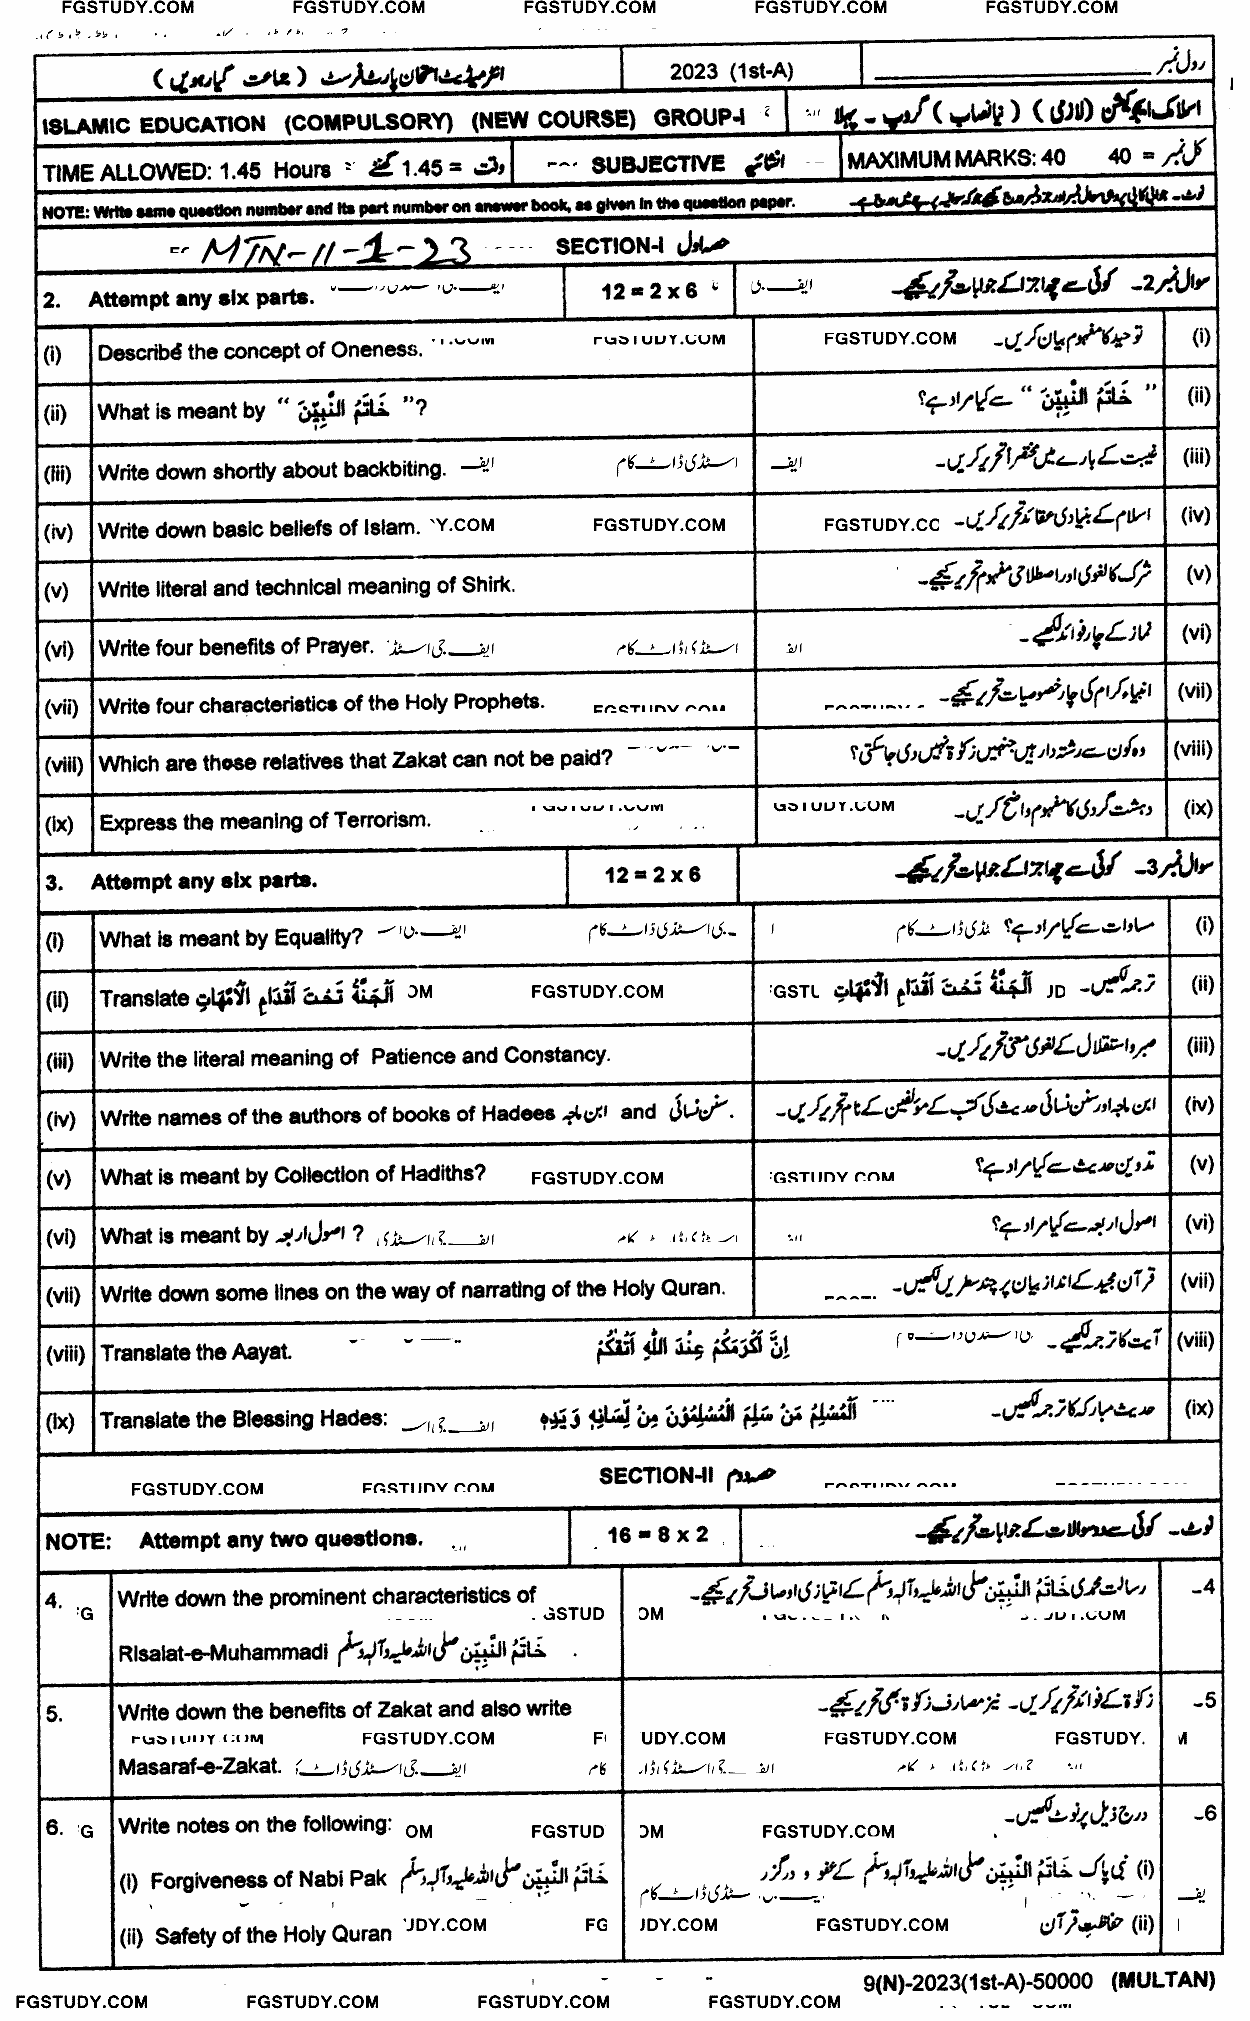 FGSTUDY.COM FGSTUDY.COM FGSTUDY.COM FGSTUDY.COM FGSTUDY.COM
انٹرمیڈیٹ امتحان پارٹ فرسٹ ( جماعت گیارہویں ) 2023 (1st-A) رول نمبر
ISLAMIC EDUCATION (COMPULSORY) (NEW COURSE) GROUP-I اسلامک ایجوکیشن (لازمی) ( نیا نصاب ) گروپ - پہلا
TIME ALLOWED: 1.45 Hours وقت = 1.45 گھنٹے SUBJECTIVE انشائیہ MAXIMUM MARKS: 40 کل نمبر = 40
NOTE: Write same question number and its part number on answer book, as given in the question paper.
MTN-11-1-23 SECTION-I حصہ اول
2. Attempt any six parts. 12 = 2 x 6 سوال نمبر 2- کوئی سے چھ اجزا کے جوابات تحریر کیجیے۔
(i) Describe the concept of Oneness. FGSTUDY.COM توحید کا مفہوم بیان کریں۔ (i)
(ii) What is meant by “ خَاتَمُ النَّبِيّٖنَ ”? “ خَاتَمُ النَّبِيّٖنَ ” سے کیا مراد ہے؟ (ii)
(iii) Write down shortly about backbiting. غیبت کے بارے میں مختصراً تحریر کریں۔ (iii)
(iv) Write down basic beliefs of Islam. Y.COM FGSTUDY.COM FGSTUDY.CC اسلام کے بنیادی عقائد تحریر کریں۔ (iv)
(v) Write literal and technical meaning of Shirk. شرک کا لغوی اور اصطلاحی مفہوم تحریر کیجیے۔ (v)
(vi) Write four benefits of Prayer. نماز کے چار فوائد لکھیے۔ (vi)
(vii) Write four characteristics of the Holy Prophets. انبیاء کرام کی چار خصوصیات تحریر کیجیے۔ (vii)
(viii) Which are those relatives that Zakat can not be paid? وہ کون سے رشتہ دار ہیں جنہیں زکوٰۃ نہیں دی جا سکتی؟ (viii)
(ix) Express the meaning of Terrorism. دہشت گردی کا مفہوم واضح کریں۔ (ix)
3. Attempt any six parts. 12 = 2 x 6 سوال نمبر 3- کوئی سے چھ اجزا کے جوابات تحریر کیجیے۔
(i) What is meant by Equality? مساوات سے کیا مراد ہے؟ (i)
(ii) Translate اَلْجَنَّةُ تَحْتَ اَقْدَامِ الْاُمَّهَاتِ OM FGSTUDY.COM اَلْجَنَّةُ تَحْتَ اَقْدَامِ الْاُمَّهَاتِ ترجمہ لکھیں۔ (ii)
(iii) Write the literal meaning of Patience and Constancy. صبر و استقلال کے لغوی معنی تحریر کریں۔ (iii)
(iv) Write names of the authors of books of Hadees ابن ماجہ and سنن نسائی. ابن ماجہ اور سنن نسائی حدیث کی کتب کے مؤلفین کے نام تحریر کریں۔ (iv)
(v) What is meant by Collection of Hadiths? FGSTUDY.COM تدوین حدیث سے کیا مراد ہے؟ (v)
(vi) What is meant by اصول اربعہ ? اصول اربعہ سے کیا مراد ہے؟ (vi)
(vii) Write down some lines on the way of narrating of the Holy Quran. قرآن مجید کے انداز بیان پر چند سطریں لکھیں۔ (vii)
(viii) Translate the Aayat. اِنَّ اَكْرَمَكُمْ عِنْدَ اللّٰهِ اَتْقٰكُمْ آیت کا ترجمہ لکھیے۔ (viii)
(ix) Translate the Blessing Hades: اَلْمُسْلِمُ مَنْ سَلِمَ الْمُسْلِمُوْنَ مِنْ لِّسَانِهٖ وَ يَدِهٖ حدیث مبارکہ کا ترجمہ لکھیں۔ (ix)
SECTION-II حصہ دوم
FGSTUDY.COM FGSTUDY.COM
NOTE: Attempt any two questions. 16 = 8 x 2 نوٹ- کوئی سے دو سوالات کے جوابات تحریر کیجیے۔
4. Write down the prominent characteristics of رسالت محمدی خَاتَمُ النَّبِيّٖنَ صلی اللہ علیہ وآلہٖ وسلم کے امتیازی اوصاف تحریر کیجیے۔ -4
Risalat-e-Muhammadi خَاتَمُ النَّبِيّٖنَ صلی اللہ علیہ وآلہٖ وسلم
5. Write down the benefits of Zakat and also write زکوٰۃ کے فوائد تحریر کریں۔ نیز مصارف زکوٰۃ بھی تحریر کیجیے۔ -5
FGSTUDY.COM FGSTUDY.COM UDY.COM FGSTUDY.COM FGSTUDY.
Masaraf-e-Zakat.
6. Write notes on the following: OM FGSTUD OM FGSTUDY.COM درج ذیل پر نوٹ لکھیں۔ -6
(i) Forgiveness of Nabi Pak خَاتَمُ النَّبِيّٖنَ صلی اللہ علیہ وآلہٖ وسلم (i) نبی پاک خَاتَمُ النَّبِيّٖنَ صلی اللہ علیہ وآلہٖ وسلم کے عفو و درگزر
(ii) Safety of the Holy Quran UDY.COM FG UDY.COM FGSTUDY.COM (ii) حفاظت قرآن
9(N)-2023(1st-A)-50000 (MULTAN)
FGSTUDY.COM FGSTUDY.COM FGSTUDY.COM FGSTUDY.COM